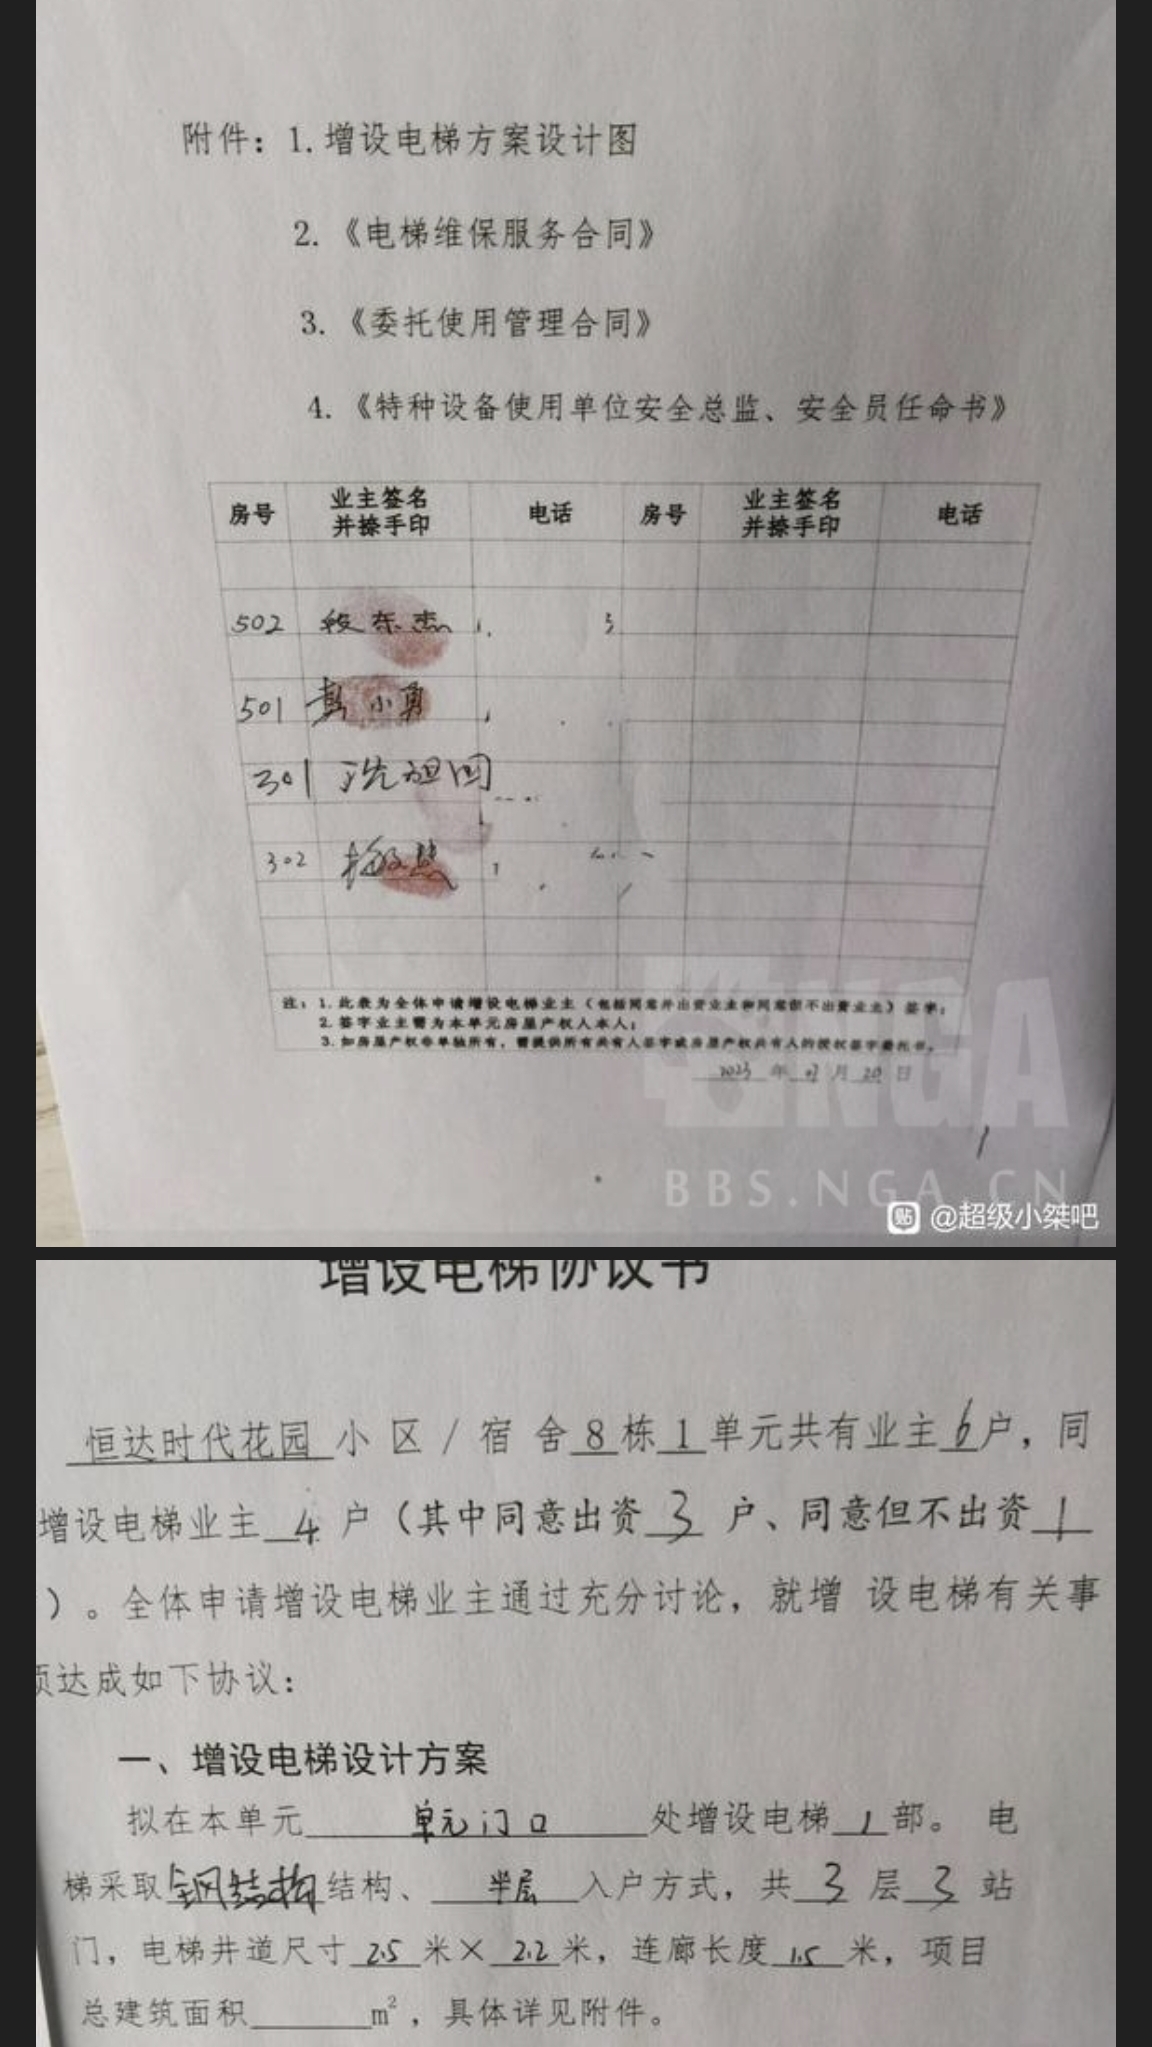 附件：1.增设电梯方案设计图
2.《电梯维保服务合同》
3.《委托使用管理合同》
4.《特种设备使用单位安全总监、安全员任命书》
房号 业主签名并捺手印 电话 房号 业主签名并捺手印 电话
502 段东杰
501 彭小勇
301
302
注：1.此表为全体申请增设电梯业主（包括同意并出资业主和同意但不出资业主）签字；
2.签字业主需为本单元房屋产权人本人；
3.如房屋产权非单独所有，需提供所有共有人签字或房屋产权共有人的授权签字委托书。
2023 年 07 月 20 日
NGA
BBS.NGA.CN
贴 @超级小桀吧
增设电梯协议书
恒达时代花园 小区/宿舍 8 栋 1 单元共有业主 6 户，同
增设电梯业主 4 户（其中同意出资 3 户、同意但不出资 1
）。全体申请增设电梯业主通过充分讨论，就增 设电梯有关事
项达成如下协议：
一、增设电梯设计方案
拟在本单元 单元门口 处增设电梯 1 部。 电
梯采取 钢结构 结构、 半层 入户方式，共 3 层 3 站
门，电梯井道尺寸 2.5 米× 2.2 米，连廊长度 1.5 米，项目
总建筑面积______m²，具体详见附件。